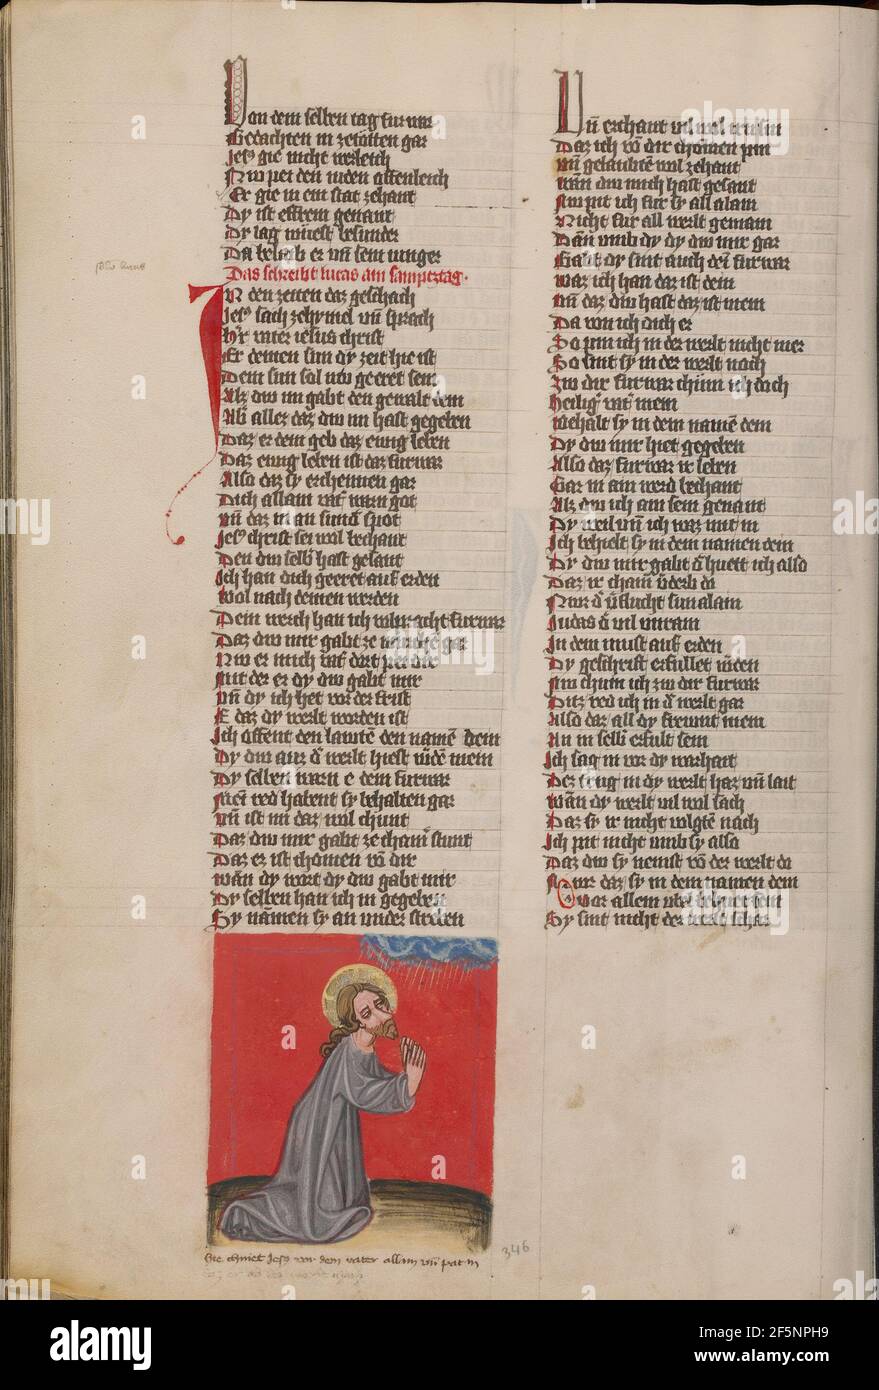 Von dem selben tag fur war
Gedachten in ze totten gar
Jesus gie nicht
pei den iuden offenleich
Er gie in ein stat zehant
Dy ist effrem genant
Dy lag wuest besunder
Da belaib er vnd sein iunger
Das schreibt lucas am samptztag
In den zeiten daz geschach
Jesus sach ze hymel vnd sprach
vater iesus christ
Er deinen sun dy zeit hie ist
Dein sun sol nu geeret sein
Alz dw im gabt den gewalt dein
Vber allez daz dw im hast gegeben
Daz er dem geb daz ewig leben
Daz ewig leben ist daz fur war
Also daz sy erchennen gar
Dich allain vater warn got
Vnd daz in an sunder spot
Jesus christ sei wol bechant
Den dw selb hast gesant
Ich han dich geeret auf erden
Wol nach deinen werden
Dein werch han ich volpracht fur war
Daz dw mir gabt ze gar
Nw er mich vater dort pei dir
Mit der er dy dw gabt mir
Vnd dy ich het vor der frist
E daz dy werlt worden ist
Ich offent den lawten den namen dein
Dy dw auz der werlt hiest werden mein
Dy selben warn e dein fur war
Mein red habent sy behalten gar
Vnd ist in daz wol chunt
Daz dw mir gabt ze stunt
Daz er ist chomen von dir
Wan dy wort dy dw gabt mir
Dy selben han ich in gegeben
Sy namen sy an wider streben
Hie chniet Jesus vor dem vater allain vnd pat in
346
Vnd erchant vil wol
Daz ich von dir chomen pin
Vnd gelaubten wol zehant
Wan dw mich hast gesant
Nw pit ich fur sy all alain
Nicht fur all werlt gemain
Dann vmb dy dy dw mir gar
Gabt dy sint auch dein fur war
Waz ich han daz ist dein
Vnd daz dw hast daz ist mein
Da von ich dich er
So pin ich in der werlt nicht mer
So sint sy in der werlt noch
Zw dir fur war chum ich doch
Heiliger vater mein
Behalt sy in dem namen dein
Dy dw mir hiet gegeben
Also daz fur war ir leben
Gar in ain werd bechant
Alz dw ich ain sein genant
Dy weil vnd ich waz mit in
Ich behielt sy in dem namen dein
Dy dw mir gabt der huett ich also
Daz ir chainer verderb do
Nur der verflucht sun alain
Judas der vil vnrain
In dem must auf erden
Dy geschrift erfullet werden
Nw chum ich zw dir fur war
Ditz red ich in der werlt gar
Also daz all dy frewnt mein
An in selb erfult sein
Ich sag in vor dy warhait
Der zeug in dy werlt haz vnd lait
Wann dy werlt vil wol sach
Daz sy ir nicht volgten nach
Ich pit nicht vmb sy also
Daz dw sy nemst von der werlt do
Nur daz sy in dem namen dein
Vor allem vbel behuet sein
Sy sint nicht der werlt schar
alamy
a
alamy
Image ID: 2F5NPH9
www.alamy.com